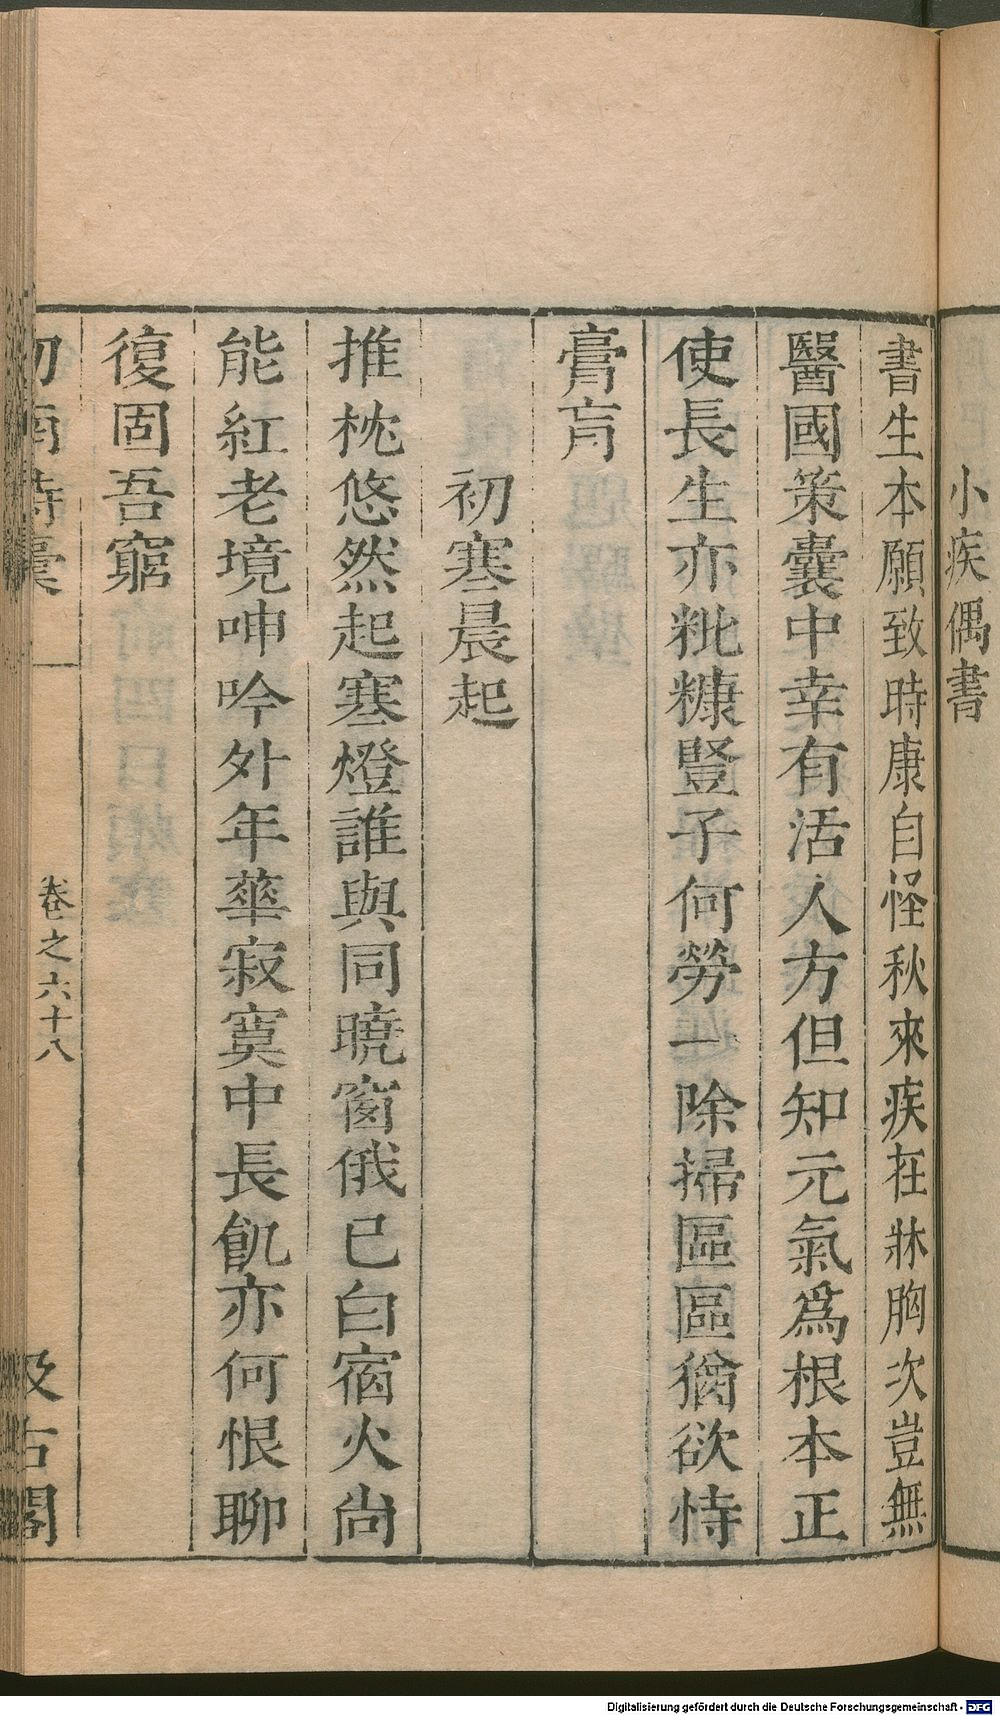 小疾偶書
書生本願致時康自怪秋來疾在牀胸次豈無
醫國策囊中幸有活人方但知元氣爲根本正
使長生亦粃糠豎子何勞一除掃區區猶欲恃
膏肓
初寒晨起
推枕悠然起寒燈誰與同曉窗俄已白宿火尚
能紅老境呻吟外年華寂寞中長飢亦何恨聊
復固吾窮
劍南詩稾
卷之六十八
汲古閣
Digitalisierung gefördert durch die Deutsche Forschungsgemeinschaft - DFG